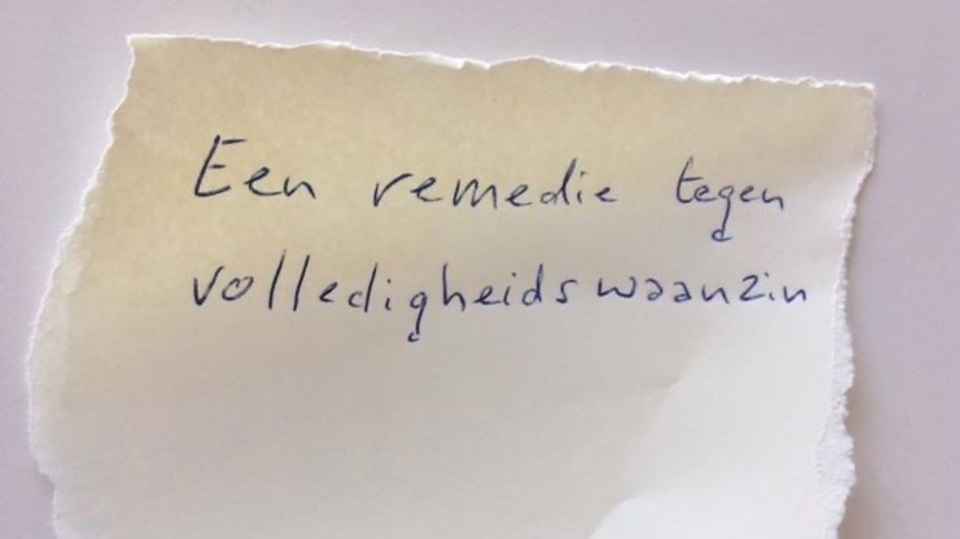 Een remedie tegen
volledigheidswaanzin